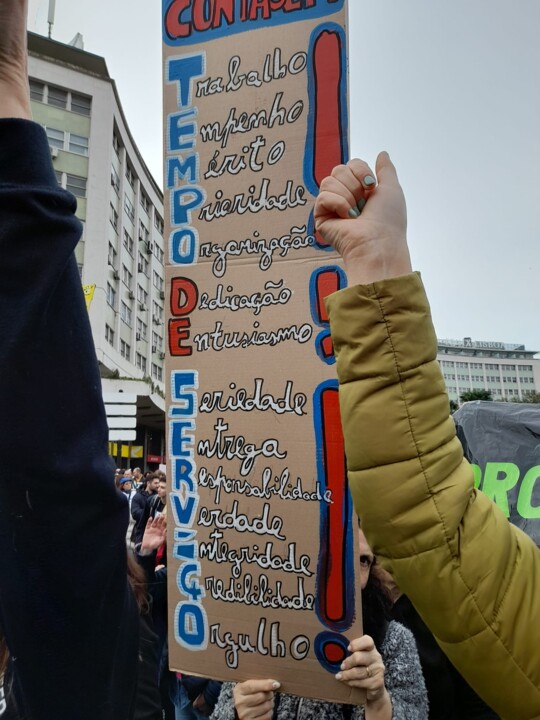 CONTAGEM
Trabalho
Empenho
Mérito
Prioridade
Organização
Dedicação
Entusiasmo
Seriedade
Entrega
Responsabilidade
Verdade
Integridade
Credibilidade
Orgulho